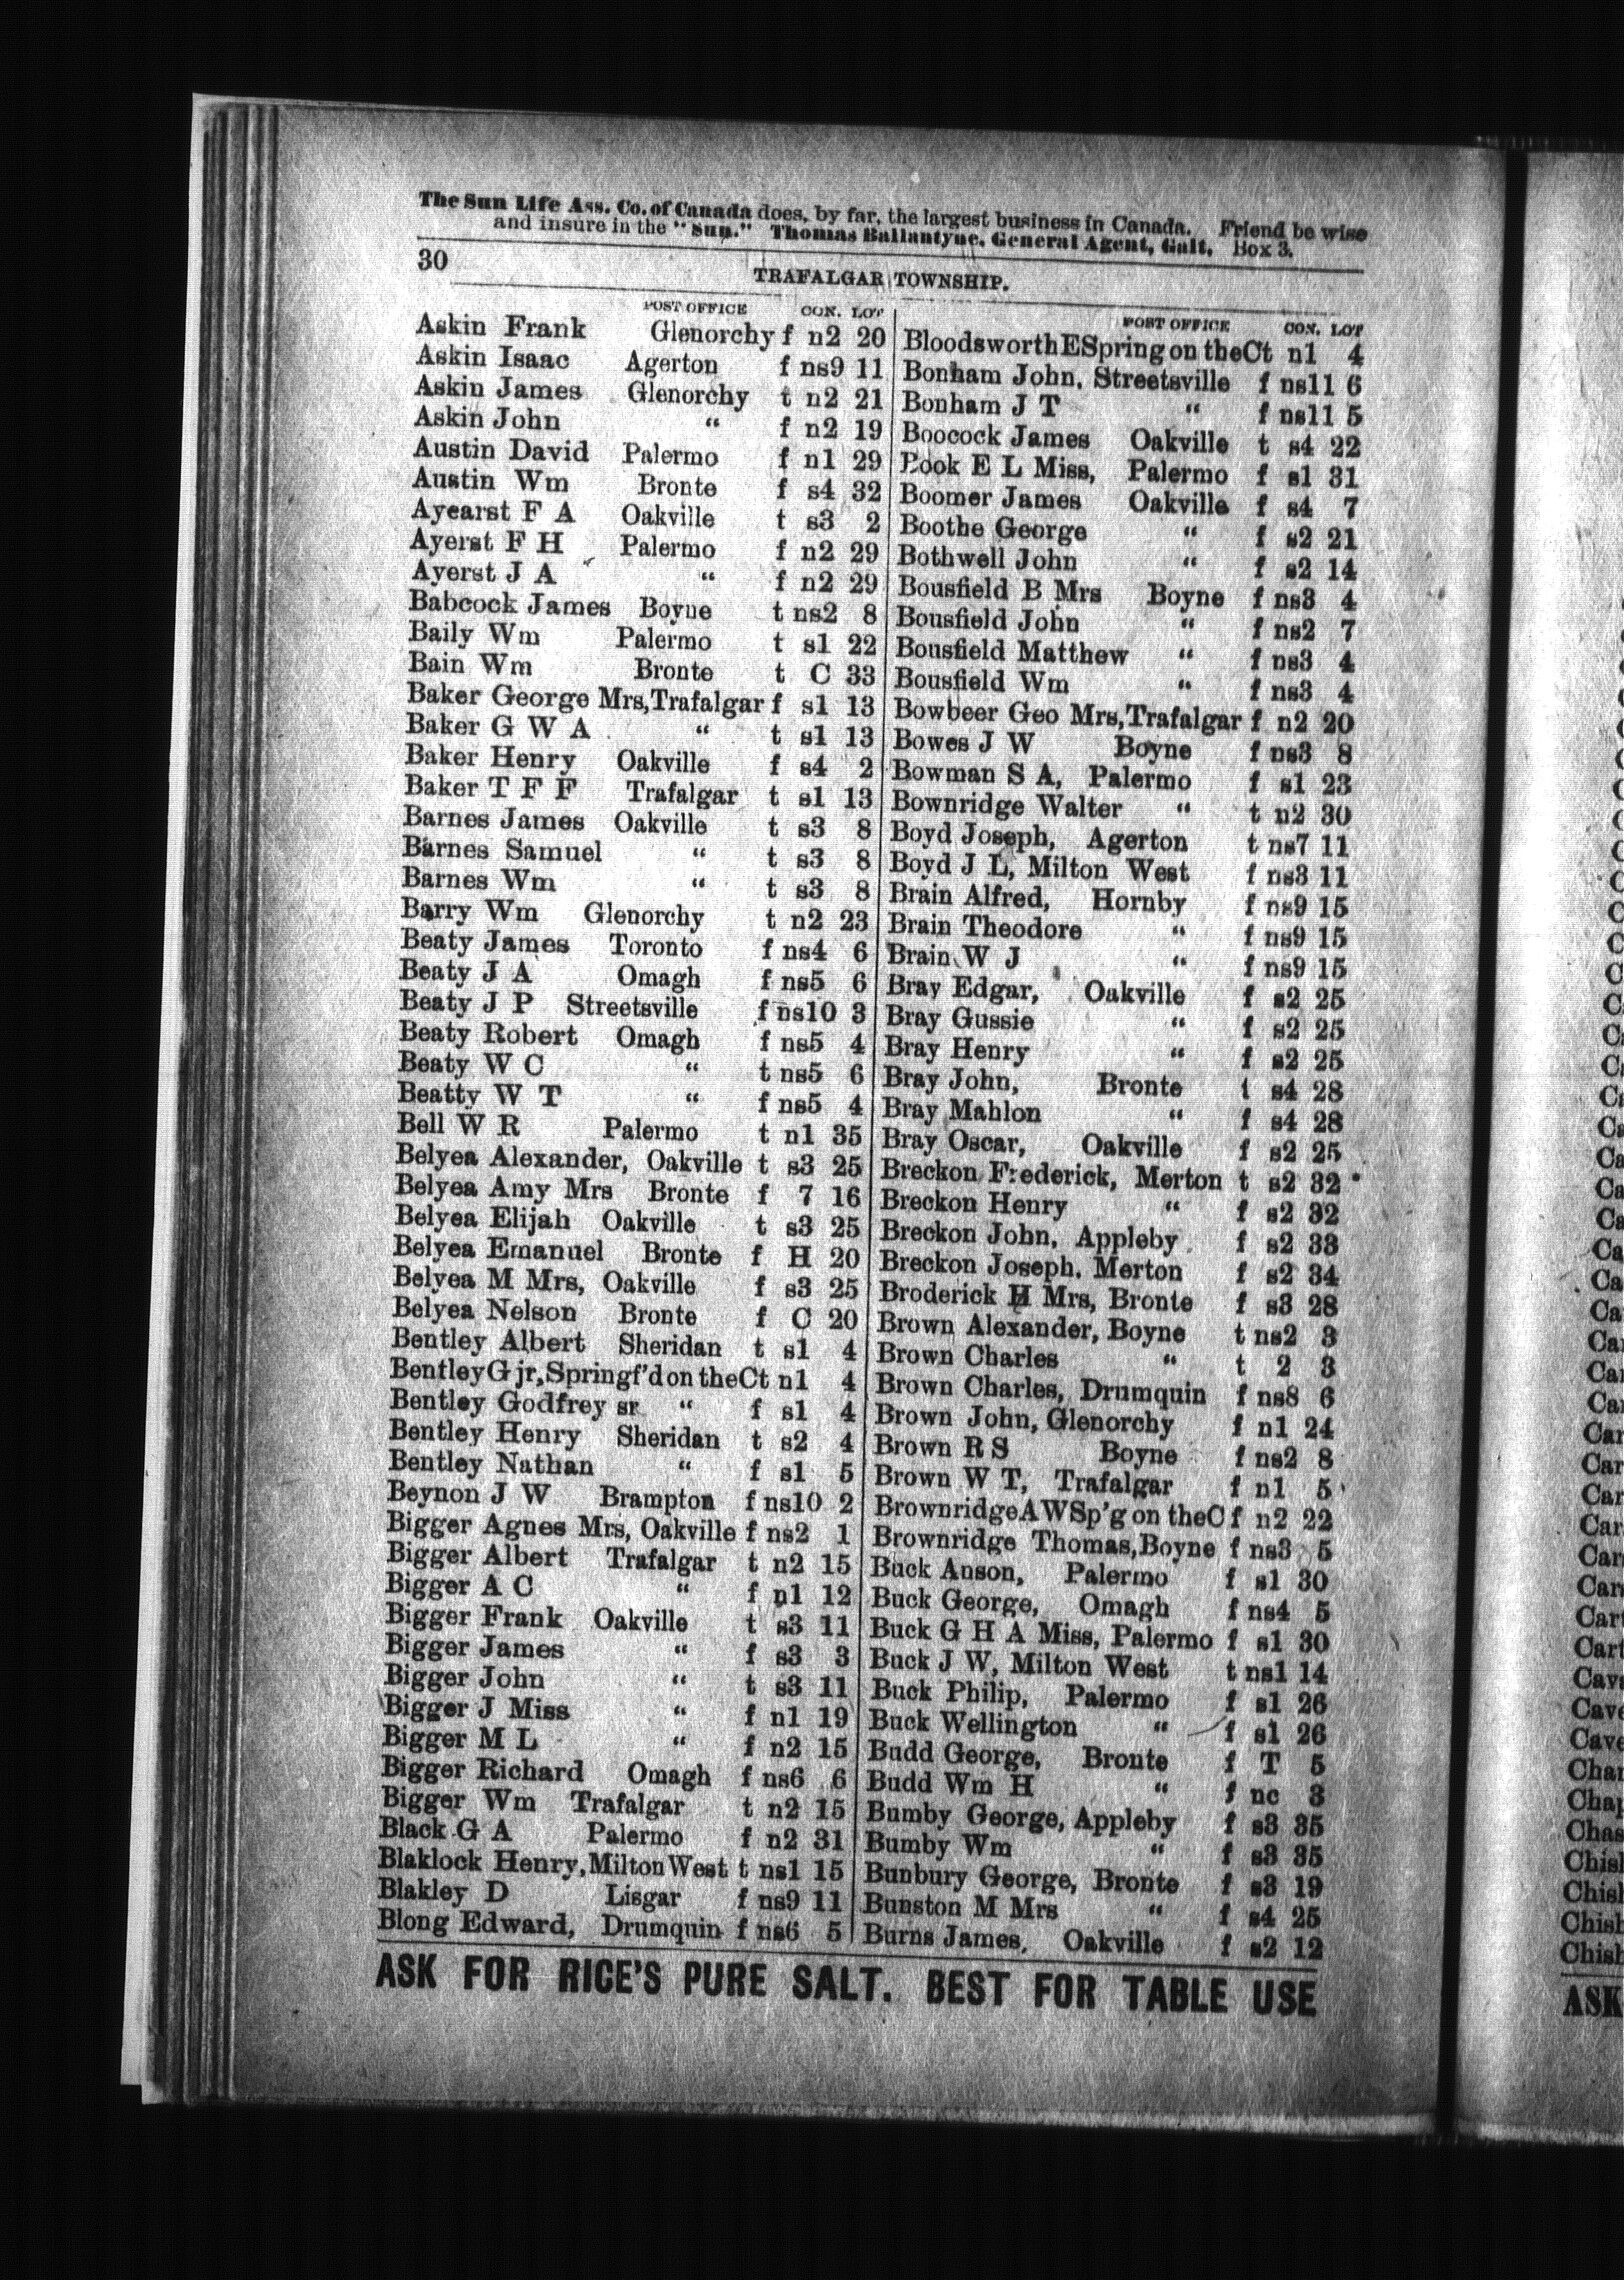 The Sun Life Ass. Co. of Canada does, by far, the largest business in Canada. Friend be wise
and insure in the "Sun." Thomas Ballantyne, General Agent, Galt, Box 3.
30
TRAFALGAR TOWNSHIP.
POST OFFICE CON. LOT
Askin Frank Glenorchy f n2 20
Askin Isaac Agerton f ns9 11
Askin James Glenorchy t n2 21
Askin John " f n2 19
Austin David Palermo f n1 29
Austin Wm Bronte f s4 32
Ayearst F A Oakville t s3 2
Ayerst F H Palermo f n2 29
Ayerst J A " f n2 29
Babcock James Boyne t ns2 8
Baily Wm Palermo t s1 22
Bain Wm Bronte t C 33
Baker George Mrs, Trafalgar f s1 13
Baker G W A " t s1 13
Baker Henry Oakville f s4 2
Baker T F F Trafalgar t s1 13
Barnes James Oakville t s3 8
Barnes Samuel " t s3 8
Barnes Wm " t s3 8
Barry Wm Glenorchy t n2 23
Beaty James Toronto f ns4 6
Beaty J A Omagh f ns5 6
Beaty J P Streetsville f ns10 3
Beaty Robert Omagh f ns5 4
Beaty W C " t ns5 6
Beatty W T " f ns5 4
Bell W R Palermo t n1 35
Belyea Alexander, Oakville t s3 25
Belyea Amy Mrs Bronte f 7 16
Belyea Elijah Oakville t s3 25
Belyea Emanuel Bronte f H 20
Belyea M Mrs, Oakville f s3 25
Belyea Nelson Bronte f C 20
Bentley Albert Sheridan t s1 4
Bentley G jr, Springf'd on the C t n1 4
Bentley Godfrey sr " f s1 4
Bentley Henry Sheridan t s2 4
Bentley Nathan " f s1 5
Beynon J W Brampton f ns10 2
Bigger Agnes Mrs, Oakville f ns2 1
Bigger Albert Trafalgar t n2 15
Bigger A C " f n1 12
Bigger Frank Oakville t s3 11
Bigger James " f s3 3
Bigger John " t s3 11
Bigger J Miss " f n1 19
Bigger M L " f n2 15
Bigger Richard Omagh f ns6 6
Bigger Wm Trafalgar t n2 15
Black G A Palermo f n2 31
Blaklock Henry, Milton West t ns1 15
Blakley D Lisgar f ns9 11
Blong Edward, Drumquin f ns6 5
POST OFFICE CON. LOT
Bloodsworth E Spring on the C t n1 4
Bonham John, Streetsville f ns11 6
Bonham J T " f ns11 5
Boocock James Oakville t s4 22
Book E L Miss, Palermo f s1 31
Boomer James Oakville f s4 7
Boothe George " f s2 21
Bothwell John " f s2 14
Bousfield B Mrs Boyne f ns3 4
Bousfield John " f ns2 7
Bousfield Matthew " f ns3 4
Bousfield Wm " f ns3 4
Bowbeer Geo Mrs, Trafalgar f n2 20
Bowes J W Boyne f ns3 8
Bowman S A, Palermo f s1 23
Bownridge Walter " t n2 30
Boyd Joseph, Agerton t ns7 11
Boyd J L, Milton West f ns3 11
Brain Alfred, Hornby f ns9 15
Brain Theodore " f ns9 15
Brain W J " f ns9 15
Bray Edgar, Oakville f s2 25
Bray Gussie " f s2 25
Bray Henry " f s2 25
Bray John, Bronte t s4 28
Bray Mahlon " f s4 28
Bray Oscar, Oakville f s2 25
Breckon Frederick, Merton t s2 32
Breckon Henry " f s2 32
Breckon John, Appleby f s2 33
Breckon Joseph, Merton f s2 34
Broderick H Mrs, Bronte f s3 28
Brown Alexander, Boyne t ns2 3
Brown Charles " t 2 3
Brown Charles, Drumquin f ns8 6
Brown John, Glenorchy f n1 24
Brown R S Boyne f ns2 8
Brown W T, Trafalgar f n1 5
Brownridge A W Sp'g on the C f n2 22
Brownridge Thomas, Boyne f ns3 5
Buck Anson, Palermo f s1 30
Buck George, Omagh f ns4 5
Buck G H A Miss, Palermo f s1 30
Buck J W, Milton West t ns1 14
Buck Philip, Palermo f s1 26
Buck Wellington " f s1 26
Budd George, Bronte f T 5
Budd Wm H " f nc 3
Bumby George, Appleby f s3 35
Bumby Wm " f s3 35
Bunbury George, Bronte f s3 19
Bunston M Mrs " f s4 25
Burns James, Oakville f s2 12
ASK FOR RICE'S PURE SALT. BEST FOR TABLE USE
ASK